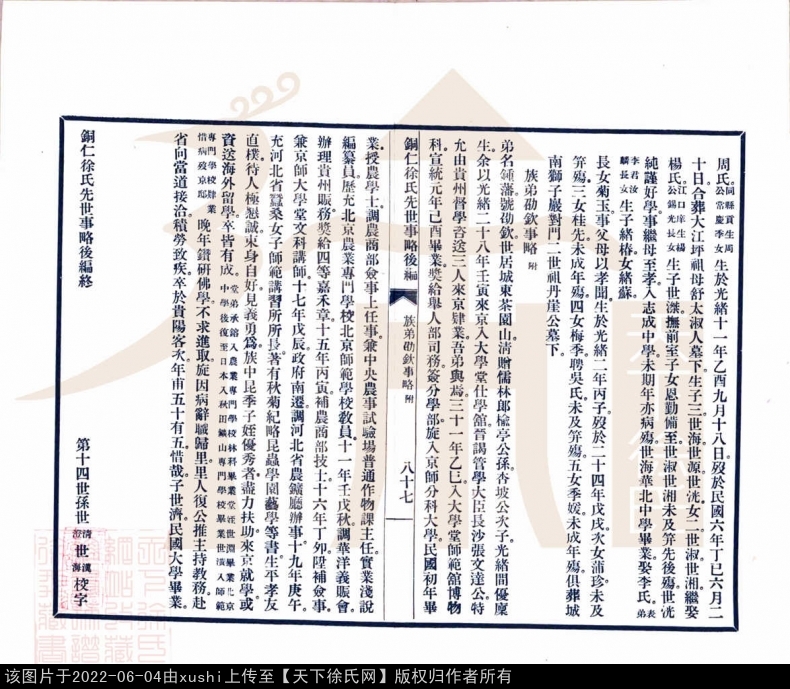 周氏同縣貢生周公常慶季女生於光緒十一年乙酉九月十八日歿於民國六年丁巳六月二
十日合葬大江坪祖母舒太淑人墓下生子三世海世源世洸女二世淑世湘繼娶
楊氏江口庠生楊公錫光長女生子世濚撫前室子女恩勤備至世淑世湘未及笄先後殤世洸
純謹好學事繼母至孝入志成中學未期年亦病殤世海華北中學畢業娶李氏表弟
李君汝麟長女生子緒椿女緒蘇
長女菊玉事父母以孝聞生於光緒二年丙子歿於二十四年戊戌次女蒲珍未及
笄殤三女桂先未成年殤四女梅季聘吳氏未及笄殤五女季媛未成年殤俱葬城
南獅子巖對門二世祖丹崖公墓下
族弟劭欽事略附
弟名鍾藩號劭欽世居城東茶園山清贈儒林郎楡亭公孫杏坡公次子光緒間優廩
生余以光緒二十八年壬寅來京入大學堂仕學館晉謁管學大臣長沙張文達公特
允由貴州督學咨送三人來京肄業吾弟與焉三十一年乙巳入大學堂師範館博物
科宣統元年己酉畢業獎給舉人部司務簽分學部旋入京師分科大學民國初年畢
銅仁徐氏先世事略後編 族弟劭欽事略附 八十七
業授農學士調農商部僉事上任事兼中央農事試驗場普通作物課主任實業淺說
編纂員歷充北京農業專門學校北京師範學校教員十一年壬戌秋調華洋義賑會
辦理貴州賑務獎給四等嘉禾章十五年丙寅補農商部技士十六年丁卯陞補僉事
兼京師大學堂文科講師十七年戊辰政府南遷調河北省農鑛廳辦事十九年庚午
充河北省蠶桑女子師範講習所所長著有秋菊紀略昆蟲學園藝學等書生平孝友
直樸待人極懇誠束身自好見義勇爲族中昆季子姪優秀者盡力扶助來京就學或
資送海外留學卒皆有成堂弟承錧入農業專門學校林科畢業堂姪世淵畢業北京中學後復至日本入秋田鑛山專門學校畢業世濱入師範
專門學校肄業惜病歿京邸晚年鑽研佛學不求進取旋因病辭職歸里里人復公推主持敎務赴
省向當道接洽積勞致疾卒於貴陽客次年甫五十有五惜哉子世濟民國大學畢業
第十四世孫世清澄世漢海校字
銅仁徐氏先世事略後編終
该图片于2022-06-04由xushi上传至【天下徐氏网】版权归作者所有